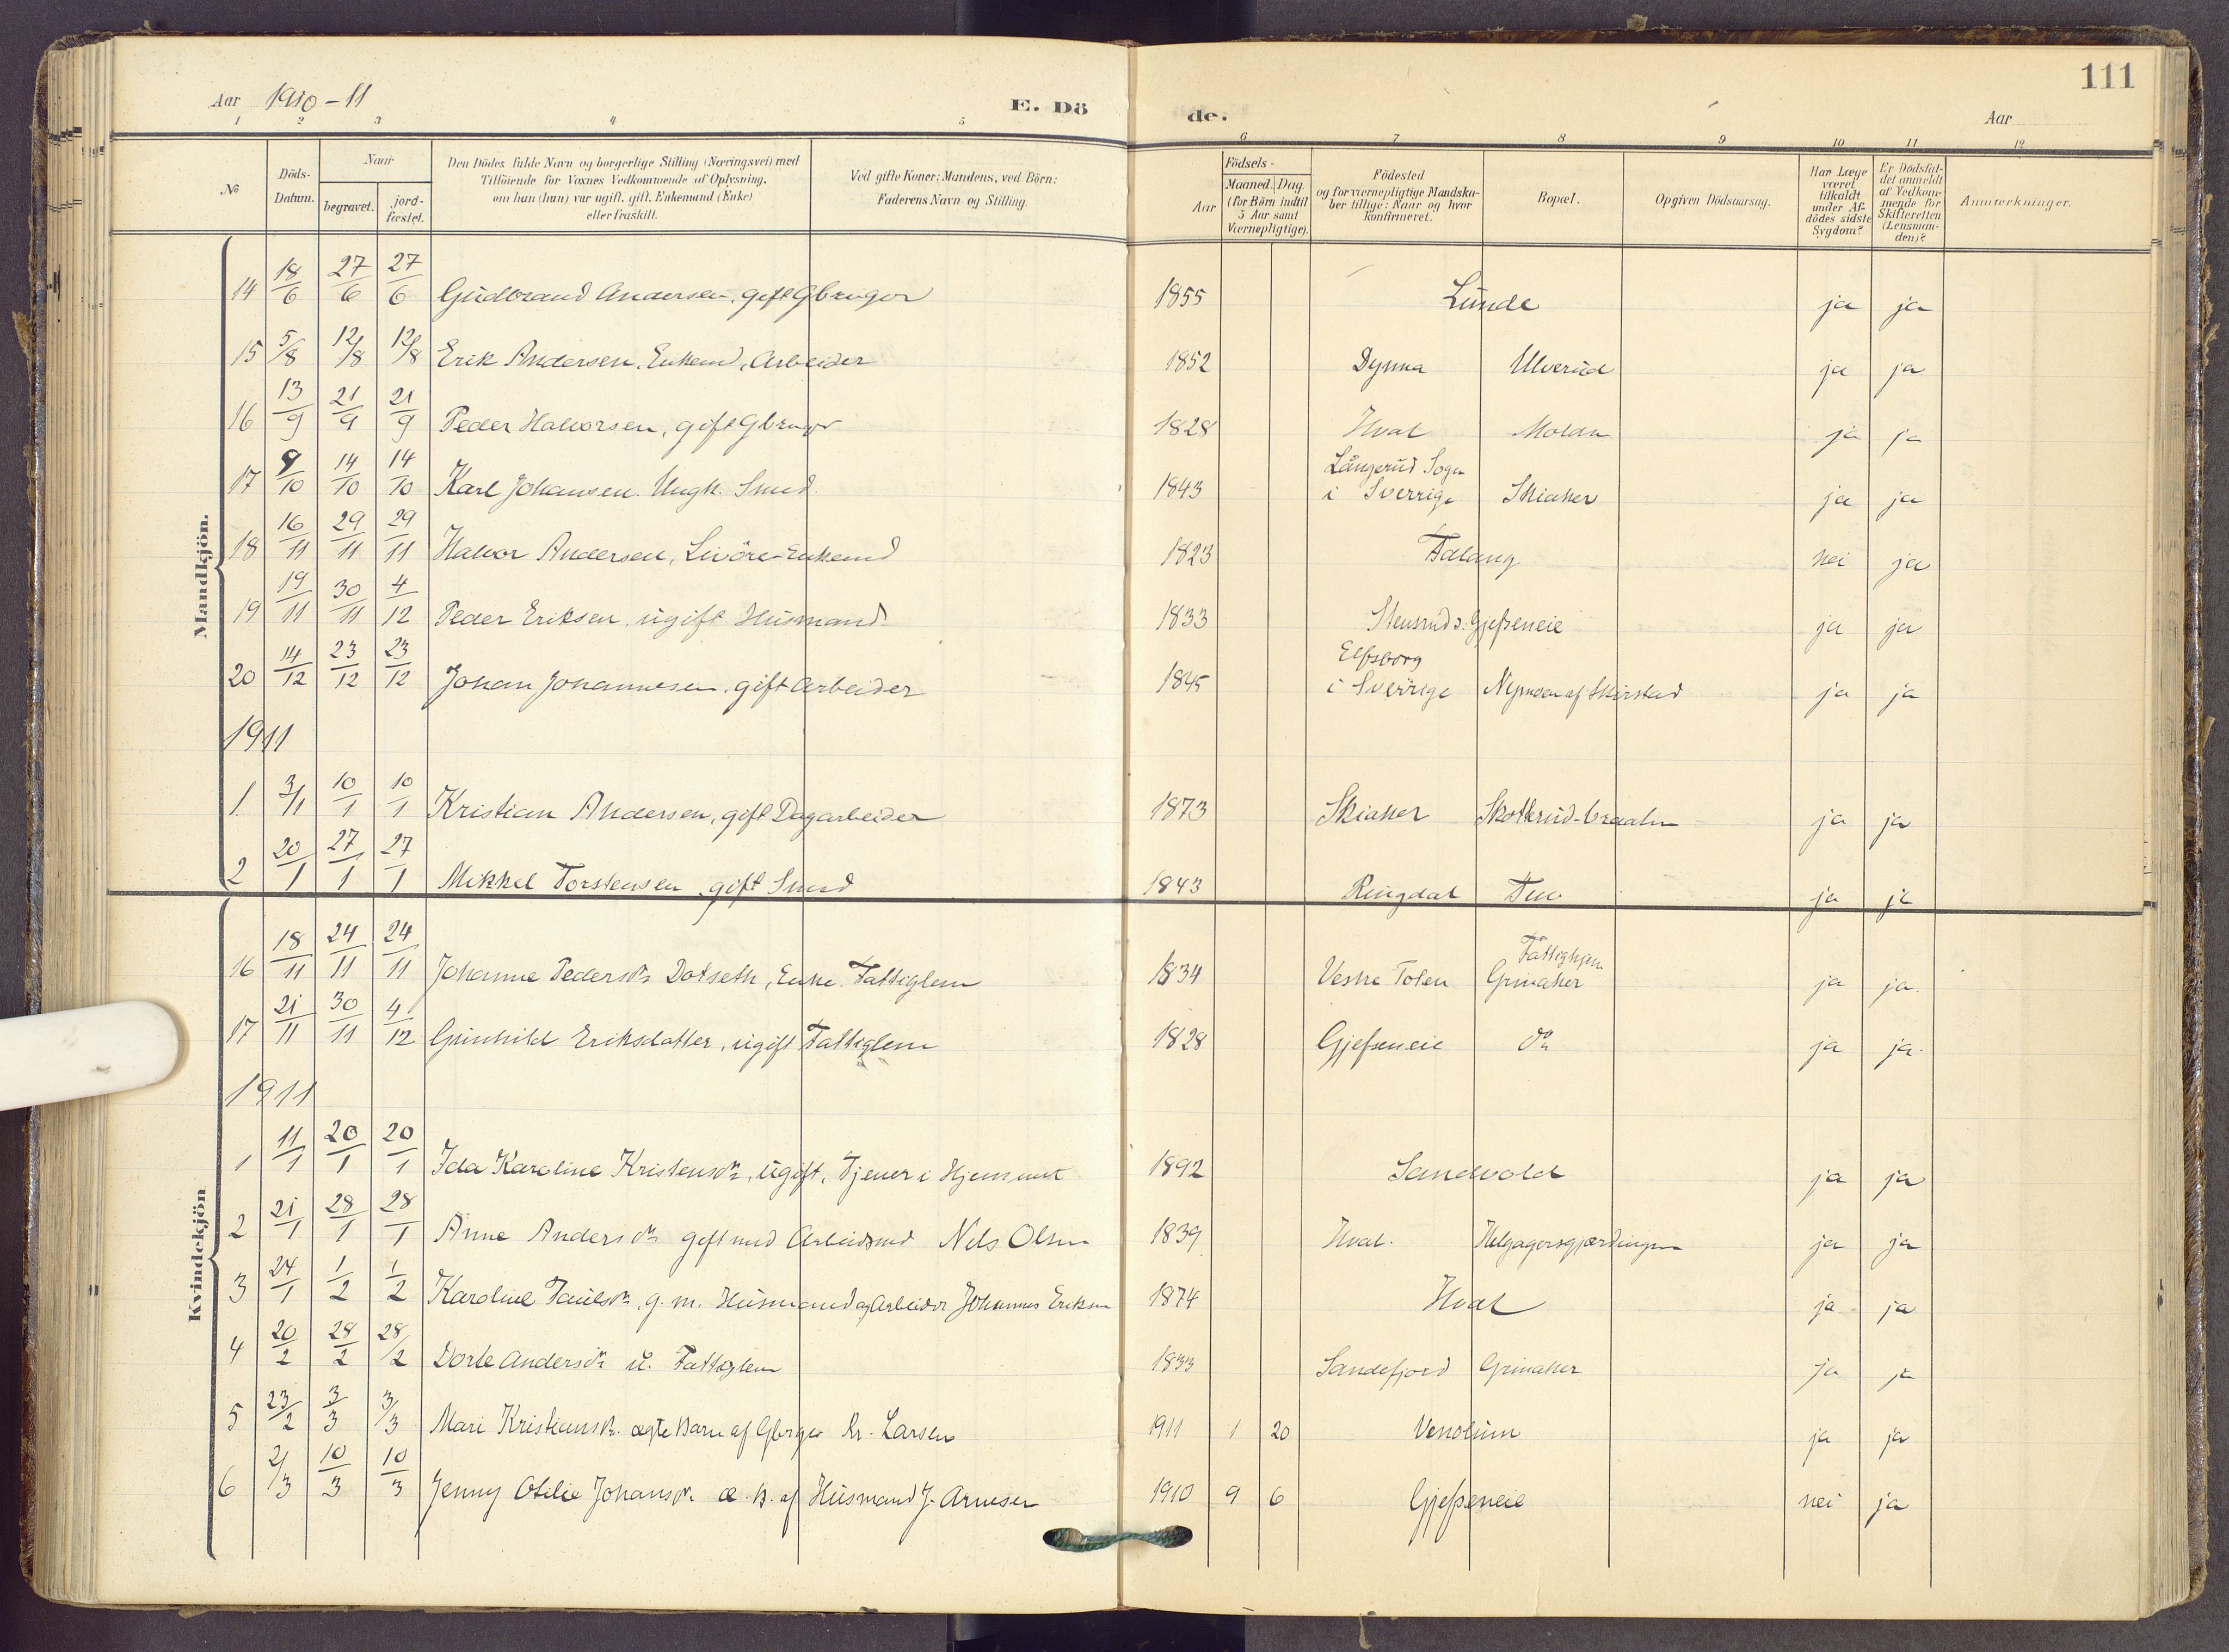 111
Aar 1910-11
E. Döde.
Aar
1 2 3 4 5 6 7 8 9 10 11 12
No
Döds-Datum.
Naar
begravet.
jord-fæstet.
Den Dödes fulde Navn og borgerlige Stilling (Næringsvei) med
Tilföiende for Voxnes Vedkommende af Oplysning,
om han (hun) var ugift, gift, Enkemand (Enke)
eller fraskilt.
Ved gifte Koner: Mandens, ved Börn:
Faderens Navn og Stilling.
Födsels-
Aar
Maaned. Dag.
(for Börn indtil
5 Aar samt
Værnepligtige).
Födested
og for værnepligtige Mandska-
ber tillige: Naar og hvor
konfirmeret.
Bopæl.
Opgiven Dödsaarsag.
Har Læge
været
tilkaldt
under Af-
dödes sidste
Sygdom?
Er Dödsfal-
det anmeldt
af Vedkom-
mende for
Skifteretten
(Lensman-
den)?
Anmærkninger.
Mandkjön.
14 18/6 27/6 27/6 Gudbrand Andersen, gift Gbruger 1855 Lunde ja ja
15 5/8 12/8 12/8 Erik Andersen, Enkemd, Arbeider 1852 Dynna Ulverud ja ja
16 13/9 21/9 21/9 Peder Halvorsen, gift Gbruger 1828 Hval Molden ja ja
17 9/10 14/10 14/10 Karl Johansen. Ungk. Smed. 1843 Långerud Sogn i Sverrige Skiaker ja ja
18 16/11 29/11 29/11 Halvor Andersen, Livöre Enkemd 1823 Falang nei ja
19 19/11 30/11 4/12 Peder Eriksen, ugift Husmand 1833 Stensrud s: Gjefseneie ja ja
20 14/12 23/12 23/12 Johan Johannesen, gift Arbeider 1845 Elfsborg i Sverrige Nymoen af Skirstad ja ja
1911
1 3/1 10/1 10/1 Kristian Andersen, gift Dagarbeider 1873 Skiaker Skotterud-braaten ja ja
2 20/1 27/1 27/1 Mikkel Torstensen, gift Smed 1843 Ringdal ja ja
Kvindekjön
16 18/11 24/11 24/11 Johanne Pedersdr. Dotseth, Enke. Fattiglem 1834 Vestre Toten Fattighjem Grinaker ja ja
17 21/11 30/11 4/12 Gunhild Eriksdatter, ugift Fattiglem 1828 Gjefseneie do ja ja
1911
1 11/1 20/1 20/1 Ida Karoline Kristensdr., ugift, Tjener i Hjemmet 1892 Sandvold ja ja
2 21/1 28/1 28/1 Anne Andersdr. gift med Arbeidsmd Nils Olsen 1839 Hval. Helgagersgjærdingen ja ja
3 24/1 1/2 1/2 Karoline Paulsdr., g. m. Husmand og Arbeider Johannes Eriksen 1874 Hval ja ja
4 20/2 28/2 28/2 Dorte Andersdr. u. Fattiglem 1833 Sandefjord Grinaker ja ja
5 23/2 3/3 3/3 Mari Kristiansdr. ægte Barn af Gbrger Kr. Larsen 1911 1 20 Venolum ja ja
6 2/3 10/3 10/3 Jenny Otilie Johansdr. æ. B. af Husmand J. Arnesen 1910 9 6 Gjefseneie nei ja